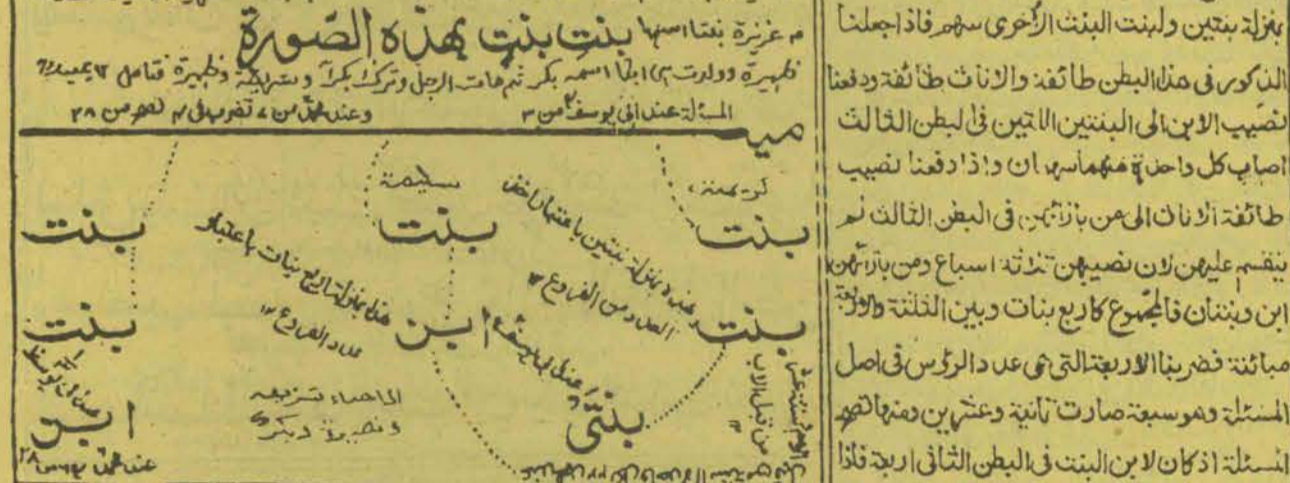 بمنزلة بنتين ولبنت البنت الأخرى سهم فاذا جعلنا
الذكور فى هذا البطن طائفة والاناث طائفة ودفعنا
نصيب الابن الى البنتين اللتين فى البطن الثالث
اصاب كل واحدة منهما سهمان واذا دفعنا نصيب
طائفة الاناث الى من بازائهن فى البطن الثالث لم
ينقسم عليهن لان نصيبهن ثلاثة اسباع ومن بازائهن
ابن وبنتان فالمجموع كاربع بنات وبين الثلثة والاربعة
مبائنة فضربنا الاربعة التى هى عدد الرؤس فى اصل
المسئلة وهو سبعة صارت ثمانية وعشرين ومنها تصح
المسئلة اذ كان لابن البنت فى البطن الثانى اربعة فاذا
عزيزة بنتا اسمها بنت بنت بهذه الصورة
ظهيرة وولدت ابنا اسمه بكر ثم مات الرجل وترك بكرا وشريفة وظهيرة فتامل
المسئلة عند ابى يوسف من ٣ وعند محمد من ٧ تضرب فى ٤ تصح من ٢٨
ميت
كريمة سليمة
بنت بنت بنت
وعنده بمنزلة بنتين باعتبار اخذ
العدد من الفروع ١٢
هذا بمنزلة اربع بنات باعتبار
عدد الفروع ١٢
بنت ابن بنت
بنتى ابن
عند ابى يوسف
عند ابى يوسف
الاحياء شريفة
ونصيرة وبكر
من قبل الاب
١٢
عند محمد ٢٨